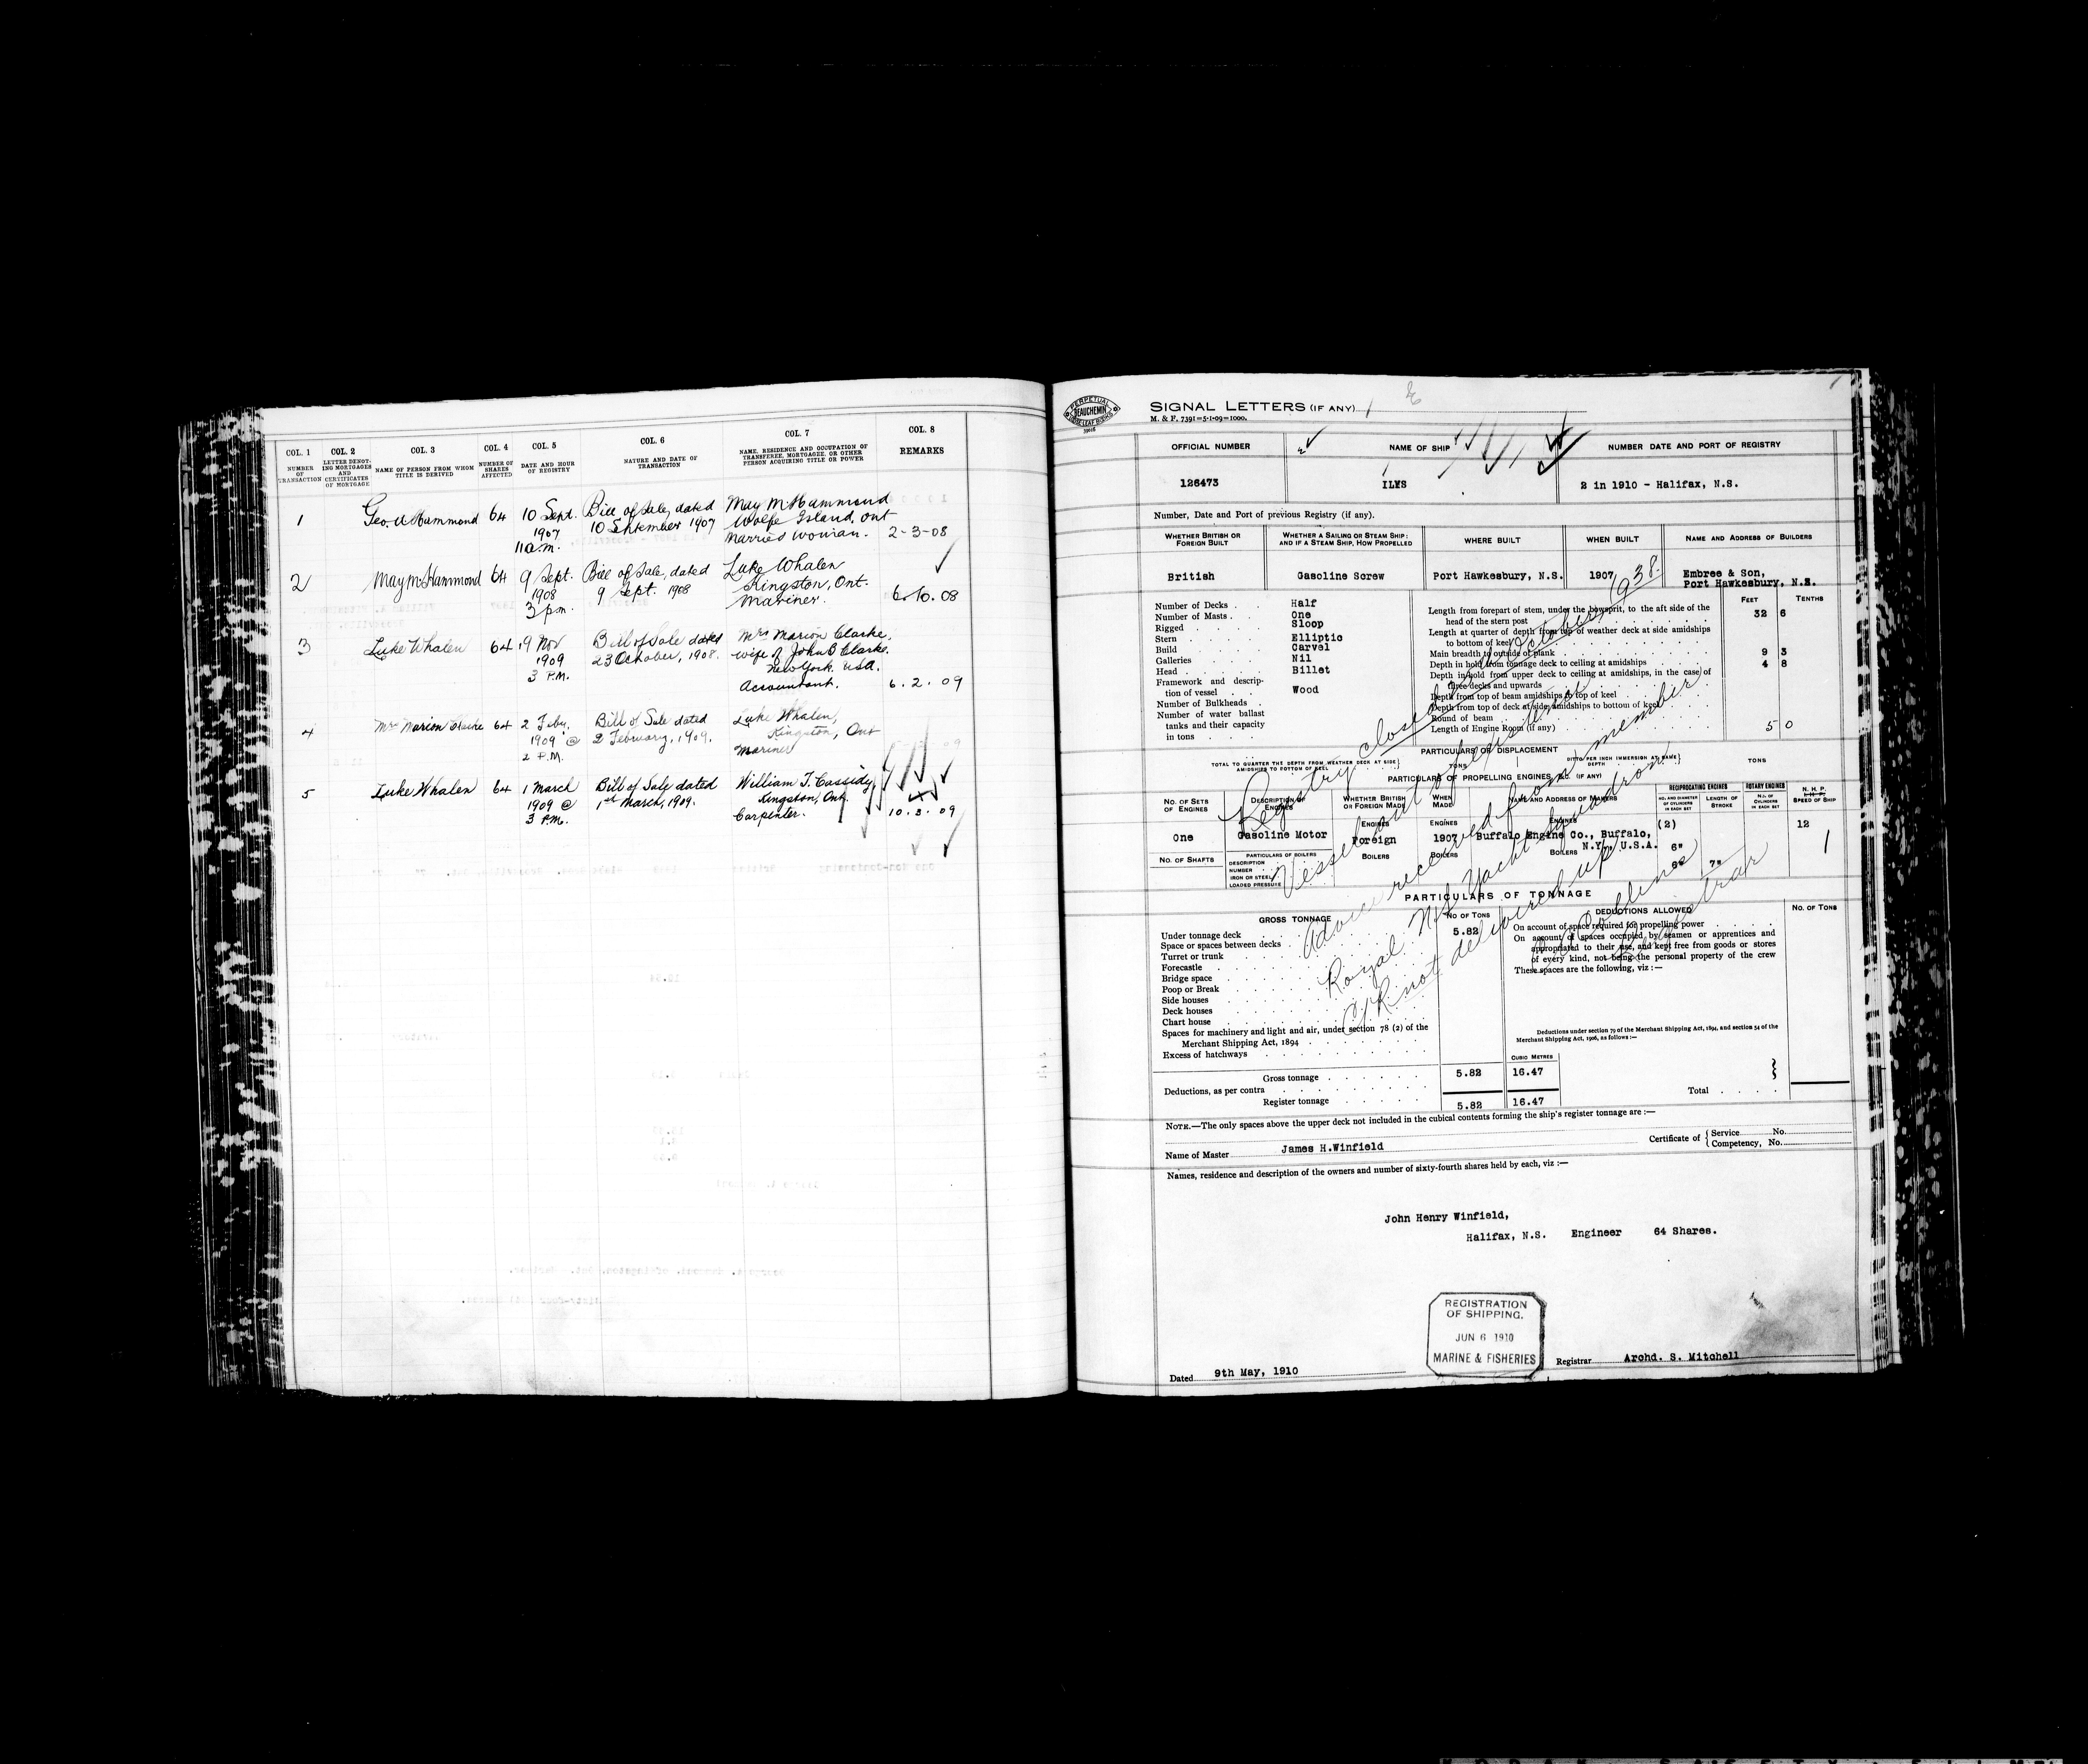 COL. 1
NUMBER
OF
TRANSACTION
COL. 2
LETTER DENOT-
ING MORTGAGES
AND
CERTIFICATES
OF MORTGAGE
COL. 3
NAME OF PERSON FROM WHOM
TITLE IS DERIVED
COL. 4
NUMBER OF
SHARES
AFFECTED
COL. 5
DATE AND HOUR
OF REGISTRY
COL. 6
NATURE AND DATE OF
TRANSACTION
COL. 7
NAME, RESIDENCE AND OCCUPATION OF
TRANSFEREE, MORTGAGEE, OR OTHER
PERSON ACQUIRING TITLE OR POWER
COL. 8
REMARKS
1
Geo. A Hammond
64
10 Sept.
1907
11 a.m.
Bill of Sale, dated
10 September 1907
May M. Hammond
Wolfe Island, Ont
Married woman.
2-3-08
2
May M. Hammond
64
9 Sept.
1908
3 pm.
Bill of Sale, dated
9 Sept. 1908
Luke Whalen
Kingston, Ont.
Mariner.
6.10.08
3
Luke Whalen
64
19 Nov
1909
3 P.M.
Bill of Sale dated
23 October, 1908.
Mrs Marion Clarke,
wife of John B Clarke.
New York. USA.
Accountant.
6.2.09
4
Mrs Marion Clarke
64
2 Feby.
1909 @
2 P.M.
Bill of Sale dated
2 February, 1909.
Luke Whalen,
Kingston, Ont
Mariner
5
Luke Whalen
64
1 March
1909 @
3 P.M.
Bill of Sale dated
1st March, 1909.
William T. Cassidy,
Kingston, Ont.
Carpenter.
10.3.09
PERPETUAL
BEAUCHEMIN
LOOSE LEAF BOOKS
SIGNAL LETTERS (IF ANY)
M. & F. 7391=5-1-09=1000.
OFFICIAL NUMBER
NAME OF SHIP
NUMBER DATE AND PORT OF REGISTRY
126473
ILYS
2 in 1910 - Halifax, N.S.
Number, Date and Port of previous Registry (if any).
WHETHER BRITISH OR
FOREIGN BUILT
WHETHER A SAILING OR STEAM SHIP:
AND IF A STEAM SHIP, HOW PROPELLED
WHERE BUILT
WHEN BUILT
NAME AND ADDRESS OF BUILDERS
British
Gasoline Screw
Port Hawkesbury, N.S.
1907
Embree & Son,
Port Hawkesbury, N.S.
Number of Decks Half
Number of Masts One
Rigged Sloop
Stern Elliptic
Build Carvel
Galleries Nil
Head Billet
Framework and descrip-
tion of vessel Wood
Number of Bulkheads
Number of water ballast
tanks and their capacity
in tons
FEET TENTHS
Length from forepart of stem, under the bowsprit, to the aft side of the
head of the stern post 32 6
Length at quarter of depth from top of weather deck at side amidships
to bottom of keel
Main breadth to outside of plank 9 3
Depth in hold from tonnage deck to ceiling at amidships 4 8
Depth in hold from upper deck to ceiling at amidships, in the case of
three decks and upwards
Depth from top of beam amidships to top of keel
Depth from top of deck at side amidships to bottom of keel
Round of beam
Length of Engine Room (if any) 5 0
PARTICULARS OF DISPLACEMENT
TOTAL TO QUARTER THE DEPTH FROM WEATHER DECK AT SIDE
AMIDSHIPS TO BOTTOM OF KEEL
TONS
DITTO PER INCH IMMERSION AT SAME
DEPTH
TONS
PARTICULARS OF PROPELLING ENGINES, &c. (IF ANY)
NO. OF SETS
OF ENGINES
DESCRIPTION OF
ENGINES
WHETHER BRITISH
OR FOREIGN MADE
WHEN
MADE
NAME AND ADDRESS OF MAKERS
RECIPROCATING ENGINES
NO. AND DIAMETER
OF CYLINDERS
IN EACH SET
LENGTH OF
STROKE
ROTARY ENGINES
NO. OF
CYLINDERS
IN EACH SET
N. H. P.
SPEED OF SHIP
ENGINES
ENGINES
ENGINES
One
Gasoline Motor
Foreign
1907
Buffalo Engine Co., Buffalo,
N.Y., U.S.A.
(2)
6"
6"
7"
12
1
NO. OF SHAFTS
PARTICULARS OF BOILERS
DESCRIPTION
NUMBER
IRON OR STEEL
LOADED PRESSURE
BOILERS
BOILERS
BOILERS
PARTICULARS OF TONNAGE
GROSS TONNAGE
NO OF TONS
DEDUCTIONS ALLOWED
NO. OF TONS
Under tonnage deck 5.82
Space or spaces between decks
Turret or trunk
Forecastle
Bridge space
Poop or Break
Side houses
Deck houses
Chart house
Spaces for machinery and light and air, under section 78 (2) of the
Merchant Shipping Act, 1894
Excess of hatchways
On account of space required for propelling power
On account of spaces occupied by seamen or apprentices and
appropriated to their use, and kept free from goods or stores
of every kind, not being the personal property of the crew
These spaces are the following, viz :—
Deductions under section 79 of the Merchant Shipping Act, 1894, and section 54 of the
Merchant Shipping Act, 1906, as follows :—
CUBIC METRES
Gross tonnage 5.82 16.47
Deductions, as per contra
Total
Register tonnage 5.82 16.47
Registry closed October, 1938.
Vessel out of existence
Advice received from member
Royal N.S. Yacht Squadron
C/R not delivered up
Collins
Registrar
NOTE.—The only spaces above the upper deck not included in the cubical contents forming the ship's register tonnage are :—
Name of Master James H.Winfield
Certificate of { Service No.
Competency, No.
Names, residence and description of the owners and number of sixty-fourth shares held by each, viz :—
John Henry Winfield,
Halifax, N.S. Engineer 64 Shares.
REGISTRATION
OF SHIPPING.
JUN 6 1910
MARINE & FISHERIES
Dated 9th May, 1910
Registrar Archd. S. Mitchell